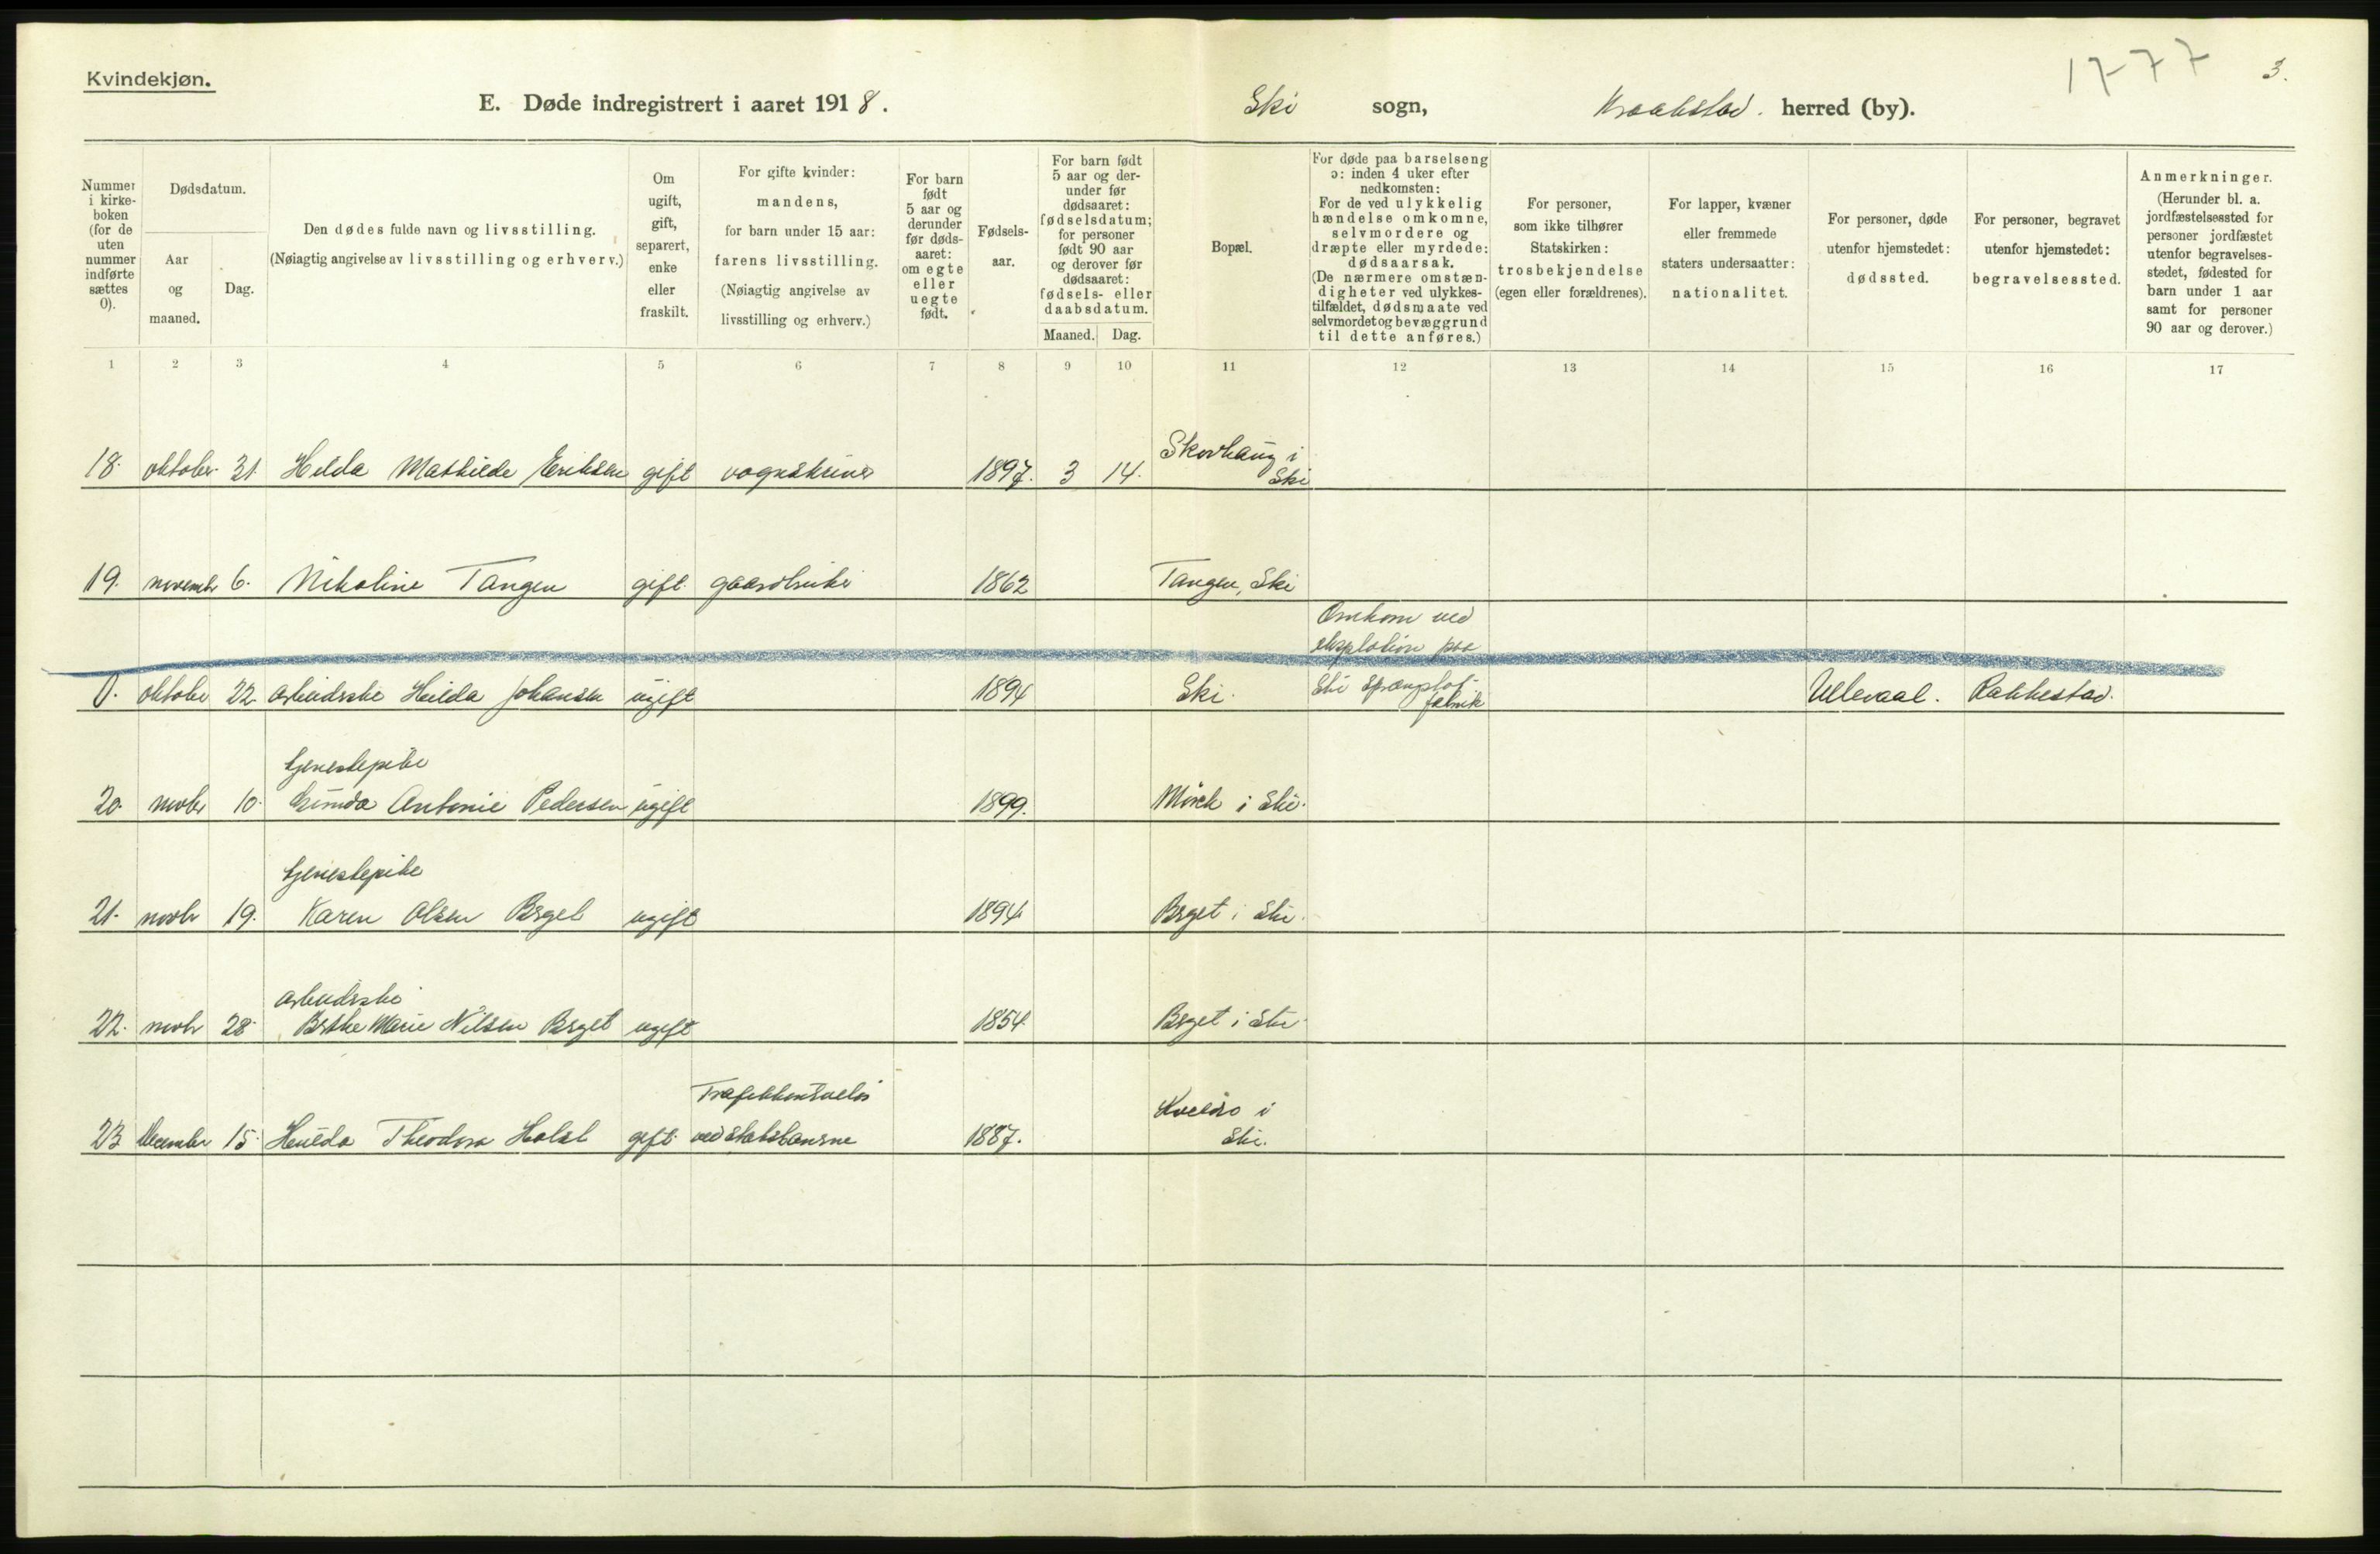 Kvindekjøn.
1777
3.
E. Døde indregistrert i aaret 1918. Ski sogn, Kraakstad. herred (by).
Nummer i kirke-boken (for de uten nummer indførte sættes 0).
Dødsdatum.
Aar og maaned.
Dag.
Den dødes fulde navn og livsstilling.
(Nøiagtig angivelse av livsstilling og erhverv.)
Om ugift, gift, separert, enke eller fraskilt.
For gifte kvinder: mandens, for barn under 15 aar: farens livsstilling.
(Nøiagtig angivelse av livsstilling og erhverv.)
For barn født 5 aar og derunder før døds-aaret: om egte eller uegte født.
Fødsels-aar.
For barn født 5 aar og der-under før dødsaaret: fødselsdatum; for personer født 90 aar og derover før dødsaaret: fødsels- eller daabsdatum.
Maaned. Dag.
Bopæl.
For døde paa barselseng ɔ: inden 4 uker efter nedkomsten: For de ved ulykkelig hændelse omkomne, selvmordere og dræpte eller myrdede: dødsaarsak.
(De nærmere omstæn-digheter ved ulykkes-tilfældet, dødsmaate ved selvmordet og bevæggrund til dette anføres.)
For personer, som ikke tilhører Statskirken: trosbekjendelse (egen eller forældrenes).
For lapper, kvæner eller fremmede staters undersaatter: nationalitet.
For personer, døde utenfor hjemstedet: dødssted.
For personer, begravet utenfor hjemstedet: begravelsessted.
Anmerkninger.
(Herunder bl. a. jordfæstelsessted for personer jordfæstet utenfor begravelses-stedet, fødested for barn under 1 aar samt for personer 90 aar og derover.)
1 2 3 4 5 6 7 8 9 10 11 12 13 14 15 16 17
Skovhaug i
18. oktober 31. Hilda Mathilde Eriksen gift vognskriver 1897. 3 14. Ski
19. novembr 6. Nikoline Tangen gift. gaardbruker 1862 Tangen, Ski
Omkom ved
eksplotion paa
0. oktober 22 arbeiderske Hilda Johansen ugift 1894 Ski. Ski sprængstof- Ullevaal. Rakkestad.
fabrik
tjenestepike
20. novbr 10. Gunda Antonie Pedersen ugift 1899. Mörk i Ski.
tjenestepike
21. novbr 19. Karen Olsen Berget ugift 1894 Berget i Ski.
arbeiderske
22. novbr 28. Berthe Marie Nilsen Berget ugift 1854 Berget i Ski.
i
23 December 15. Hulda Theodora Holst gift. ved statsbanerne 1887. Ski.